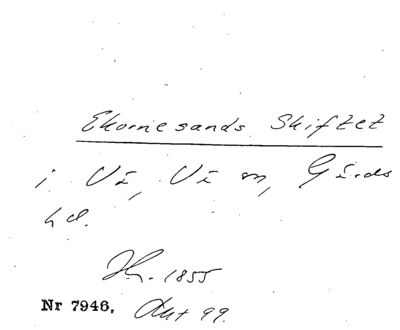 Ekornesands Skiftet
i Vi, Vi sn, Gärds
hd.
1855
Nr 7946. Akt 99.